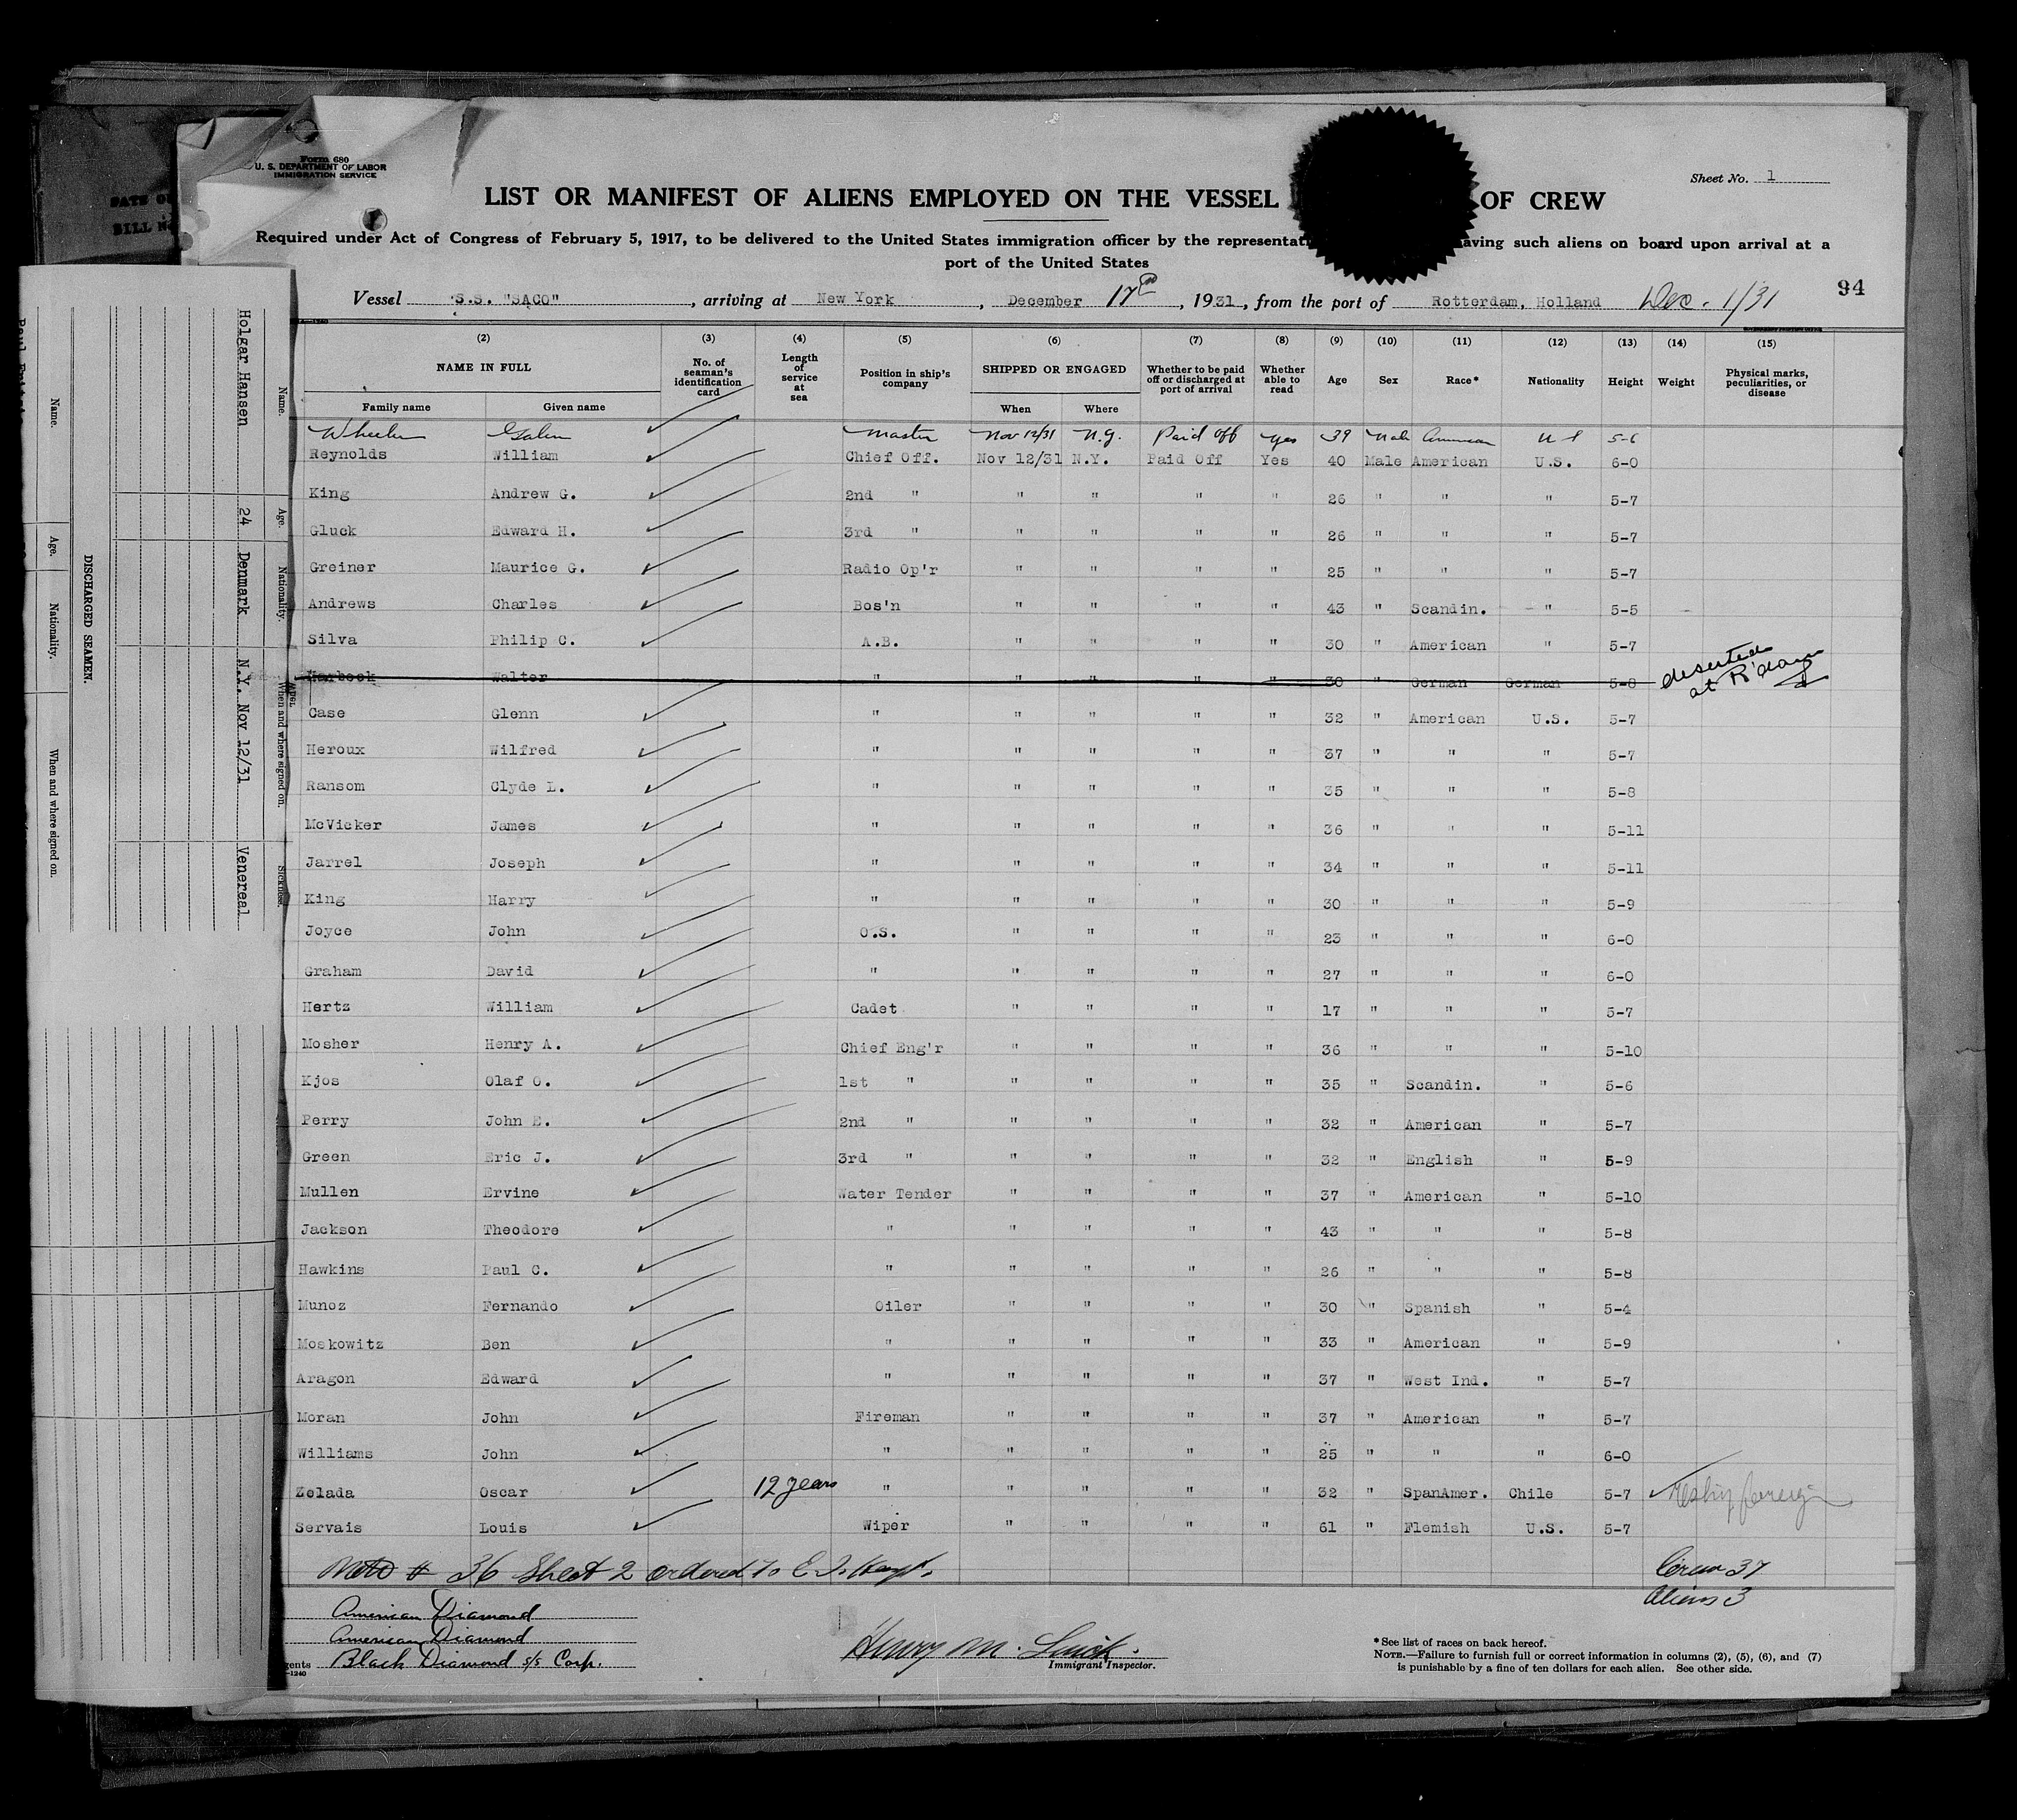 Form 680
U. S. DEPARTMENT OF LABOR
IMMIGRATION SERVICE
Sheet No. 1
LIST OR MANIFEST OF ALIENS EMPLOYED ON THE VESSEL OF CREW
Required under Act of Congress of February 5, 1917, to be delivered to the United States immigration officer by the representati aving such aliens on board upon arrival at a
port of the United States
Vessel S.S. "SACO", arriving at New York, December 17th, 1931, from the port of Rotterdam, Holland Dec. 1/31
94
(2) (3) (4) (5) (6) (7) (8) (9) (10) (11) (12) (13) (14) (15)
NAME IN FULL No. of seaman's identification card Length of service at sea Position in ship's company SHIPPED OR ENGAGED Whether to be paid off or discharged at port of arrival Whether able to read Age Sex Race* Nationality Height Weight Physical marks, peculiarities, or disease
Family name Given name When Where
Wheeler Galen Master Nov 12/31 N.Y. Paid off Yes 39 Male American U S 5-6
Reynolds William Chief Off. Nov 12/31 N.Y. Paid Off Yes 40 Male American U.S. 6-0
King Andrew G. 2nd " " " " " 26 " " " 5-7
Gluck Edward H. 3rd " " " " " 26 " " " 5-7
Greiner Maurice G. Radio Op'r " " " " 25 " " " 5-7
Andrews Charles Bos'n " " " " 43 " Scandin. " 5-5
Silva Philip C. A.B. " " " " 30 " American " 5-7
Harbeck Walter " " " " " 30 " German German 5-8 deserted at R'dam
Case Glenn " " " " " 32 " American U.S. 5-7
Heroux Wilfred " " " " " 37 " " " 5-7
Ransom Clyde L. " " " " " 35 " " " 5-8
McVicker James " " " " " 36 " " " 5-11
Jarrel Joseph " " " " " 34 " " " 5-11
King Harry " " " " " 30 " " " 5-9
Joyce John O.S. " " " " 23 " " " 6-0
Graham David " " " " " 27 " " " 6-0
Hertz William Cadet " " " " 17 " " " 5-7
Mosher Henry A. Chief Eng'r " " " " 36 " " " 5-10
Kjos Olaf O. 1st " " " " " 35 " Scandin. " 5-6
Perry John E. 2nd " " " " " 32 " American " 5-7
Green Eric J. 3rd " " " " " 32 " English " 5-9
Mullen Ervine Water Tender " " " " 37 " American " 5-10
Jackson Theodore " " " " " 43 " " " 5-8
Hawkins Paul C. " " " " " 26 " " " 5-8
Munoz Fernando Oiler " " " " 30 " Spanish " 5-4
Moskowitz Ben " " " " " 33 " American " 5-9
Aragon Edward " " " " " 37 " West Ind. " 5-7
Moran John Fireman " " " " 37 " American " 5-7
Williams John " " " " " 25 " " " 6-0
Zelada Oscar 12 years " " " " " 32 " SpanAmer. Chile 5-7 Reship foreign
Servais Louis Wiper " " " " 61 " Flemish U.S. 5-7
Note # 36 Sheet 2 ordered to E.I.
Crew 37
Aliens 3
American Diamond
American Diamond
gents Black Diamond s/s Corp.
-1240
Henry M.
Immigrant Inspector.
* See list of races on back hereof.
NOTE.—Failure to furnish full or correct information in columns (2), (5), (6), and (7)
is punishable by a fine of ten dollars for each alien. See other side.
Name. Age. Nationality. When and where signed on. Sickness.
Holgar Hansen 24 Denmark N.Y. Nov 12/31 Venereal
DISCHARGED SEAMEN.
Name. Age. Nationality. When and where signed on.
BILL N